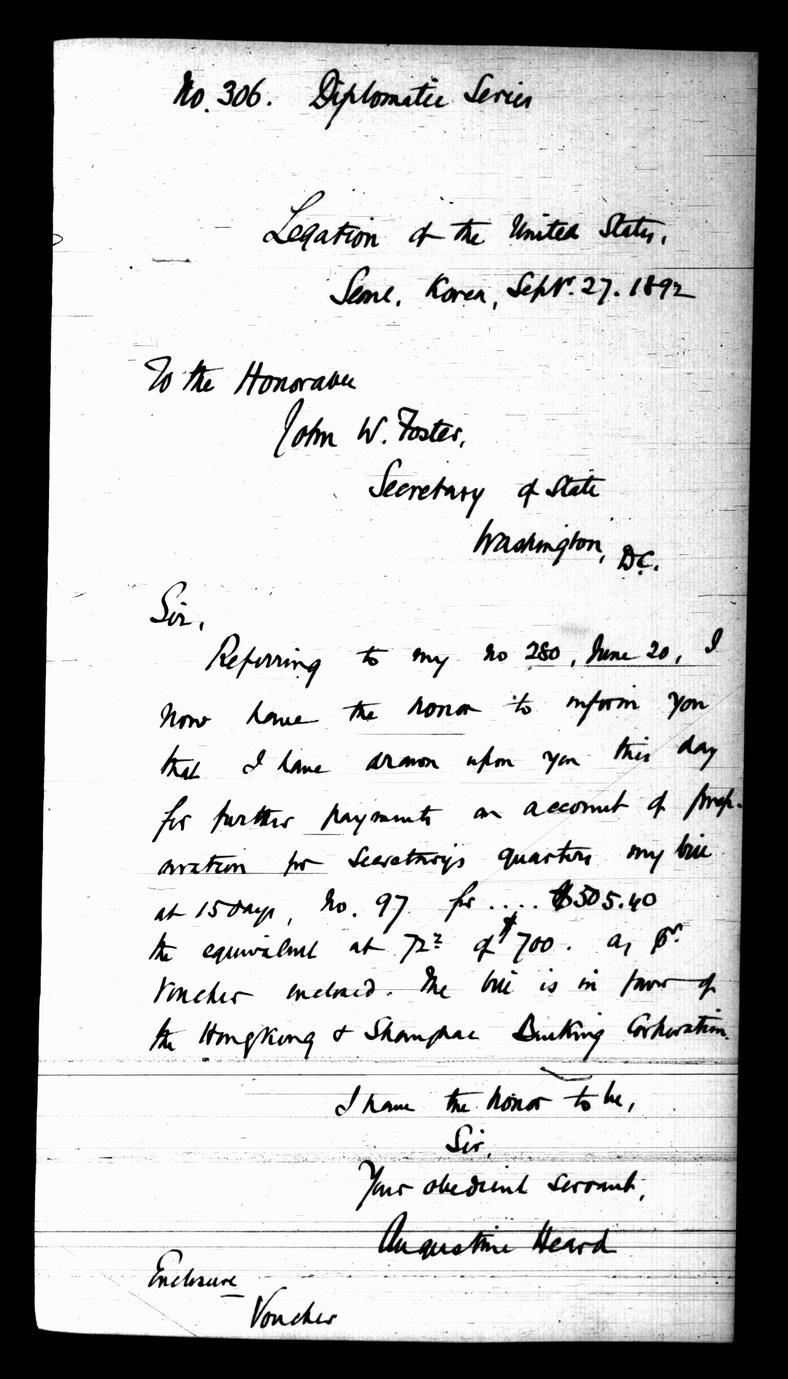 No. 306. Diplomatic Series
Legation of the United States,
Seoul, Korea, Septr. 27. 1892
To the Honorable
John W. Foster,
Secretary of State
Washington, D.C.
Sir,
Referring to my No 280, June 20, I
now have the honor to inform you
that I have drawn upon you this day
for further payments on account of prep-
aration for Secretary's quarters my bill
at 15 days, No. 97 for .... $505.40
the equivalent at 72² of $700. as pr.
Voucher enclosed. The bill is in favor of
the Hongkong & Shanghai Banking Corporation.
I have the honor to be,
Sir,
Your obedient servant,
Augustine Heard
Enclosure
Voucher